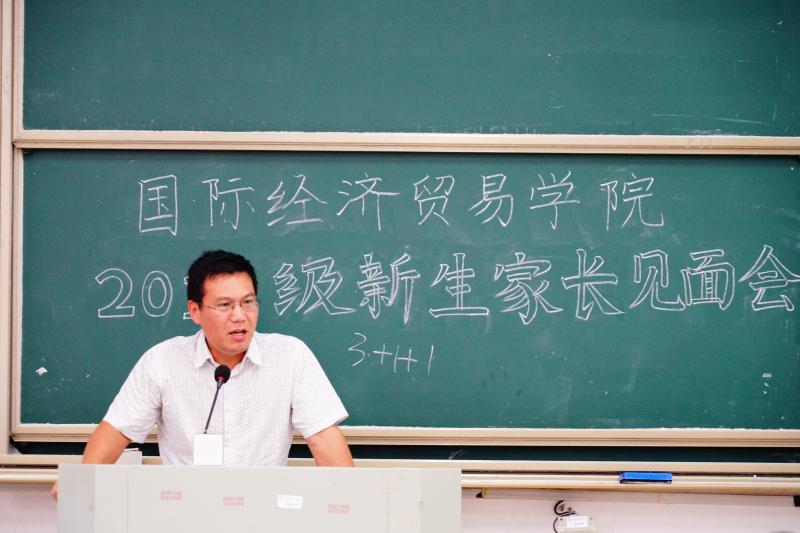 国际经济贸易学院
201 级新生家长见面会
3+1+1